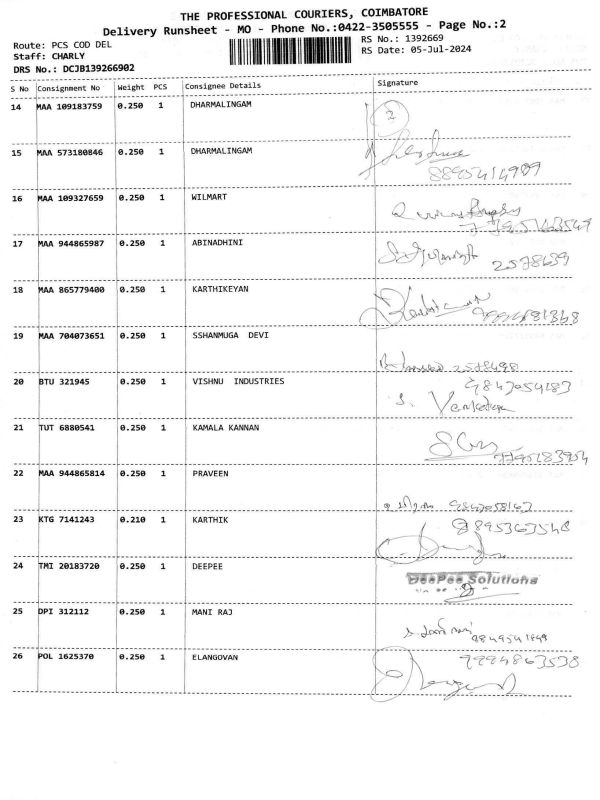 THE PROFESSIONAL COURIERS, COIMBATORE
Delivery Runsheet - MO - Phone No.:0422-3505555 - Page No.:2
Route: PCS COD DEL
Staff: CHARLY
DRS No.: DCJB139266902
RS No.: 1392669
RS Date: 05-Jul-2024
S No Consignment No Weight PCS Consignee Details Signature
14 MAA 109183759 0.250 1 DHARMALINGAM 2
15 MAA 573180846 0.250 1 DHARMALINGAM
16 MAA 109327659 0.250 1 WILMART
17 MAA 944865987 0.250 1 ABINADHINI 2578639
18 MAA 865779400 0.250 1 KARTHIKEYAN
19 MAA 704073651 0.250 1 SSHANMUGA DEVI 2578498
20 BTU 321945 0.250 1 VISHNU INDUSTRIES 9843054183
S. Venkatesa
21 TUT 6880541 0.250 1 KAMALA KANNAN
22 MAA 944865814 0.250 1 PRAVEEN 9843058163
23 KTG 7141243 0.210 1 KARTHIK 8895363548
24 TMI 20183720 0.250 1 DEEPEE DeePee Solutions
25 DPI 312112 0.250 1 MANI RAJ 9849541849
26 POL 1625370 0.250 1 ELANGOVAN 9994863538